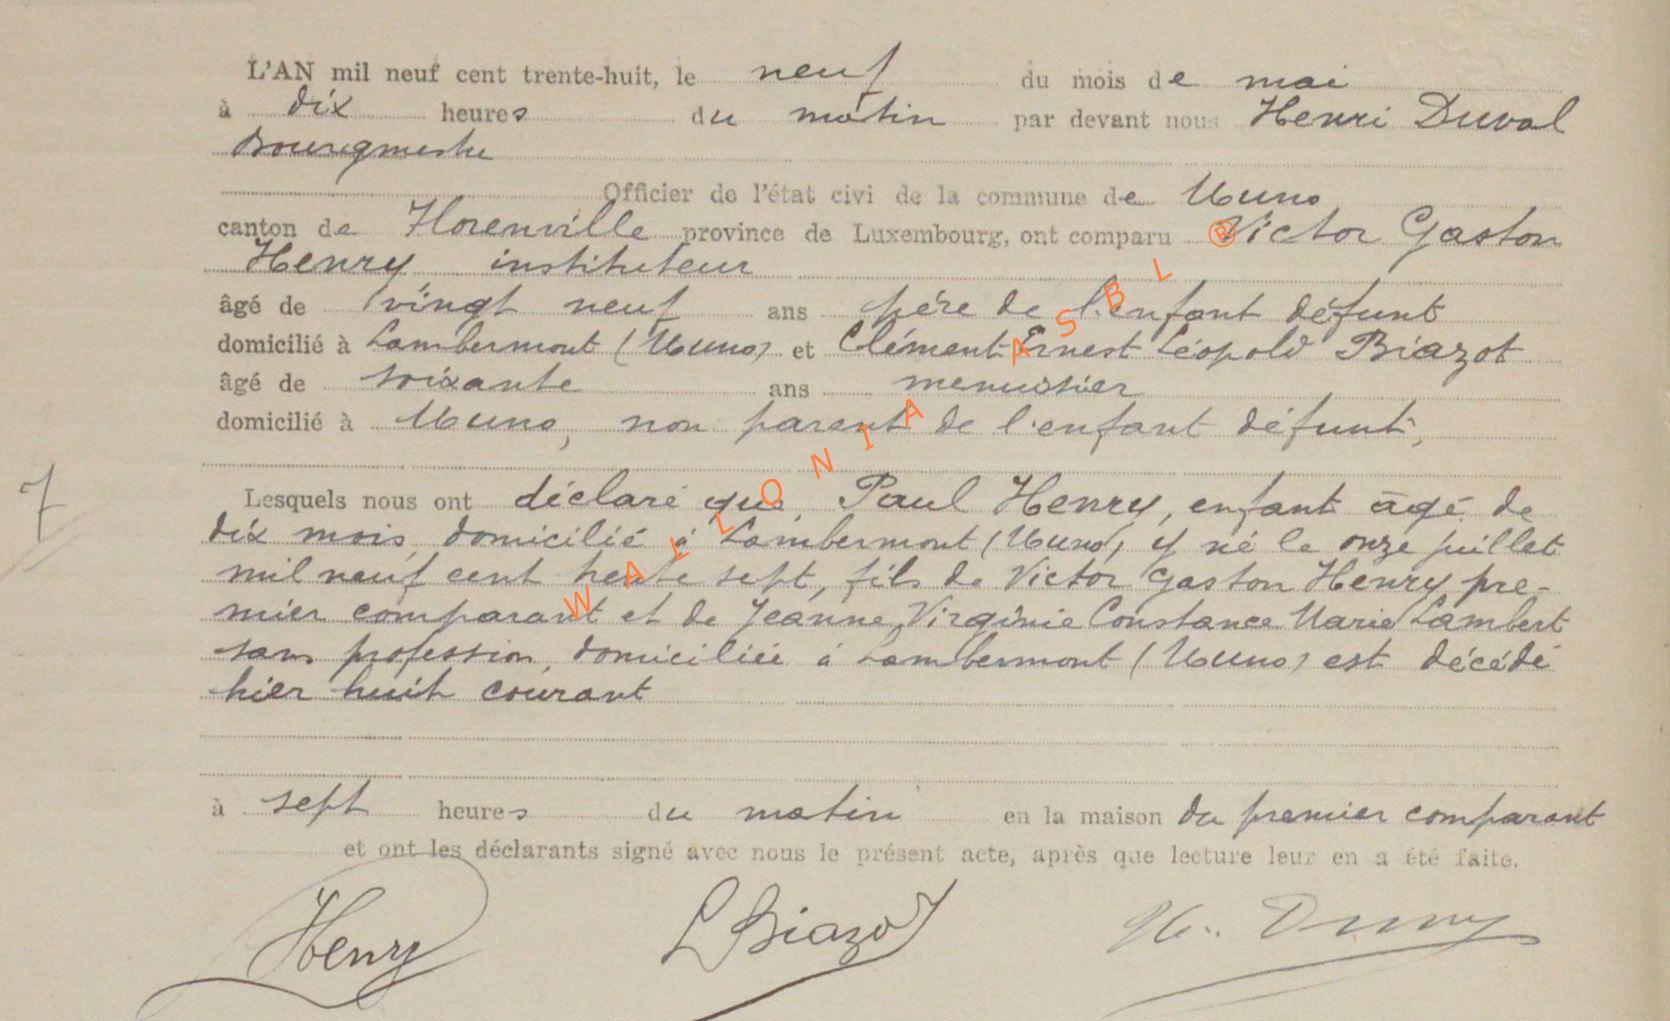 L'AN mil neuf cent trente-huit, le neuf du mois de mai
à dix heures du matin par devant nous Henri Duval
Bourgmestre
Officier de l'état civi de la commune de Muno
canton de Florenville province de Luxembourg, ont comparu Victor Gaston
Henry instituteur
âgé de vingt neuf ans père de l'enfant défunt
domicilié à Lambermont (Muno) et Clément Ernest Léopold Biazot
âgé de soixante ans menuisier
domicilié à Muno, non parent de l'enfant défunt,
7
Lesquels nous ont déclaré que Paul Henry, enfant âgé de
dix mois, domicilié à Lambermont (Muno) y né le onze juillet
mil neuf cent trente sept, fils de Victor Gaston Henry pre-
mier comparant et de Jeanne Virginie Constance Marie Lambert
sans profession, domiciliée à Lambermont (Muno) est décédé
hier huit courant
à sept heures du matin en la maison du premier comparant
et ont les déclarants signé avec nous le présent acte, après que lecture leur en a été faite.
Henry L Biazot
WALLONIA ASBL ®